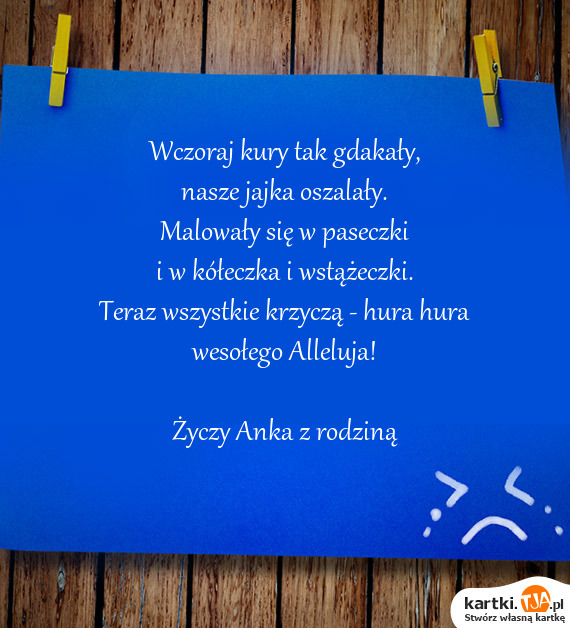 Wczoraj kury tak gdakały,
nasze jajka oszalały.
Malowały się w paseczki
i w kółeczka i wstążeczki.
Teraz wszystkie krzyczą - hura hura
wesołego Alleluja!
Życzy Anka z rodziną
kartki.TJA.pl
Stwórz własną kartkę